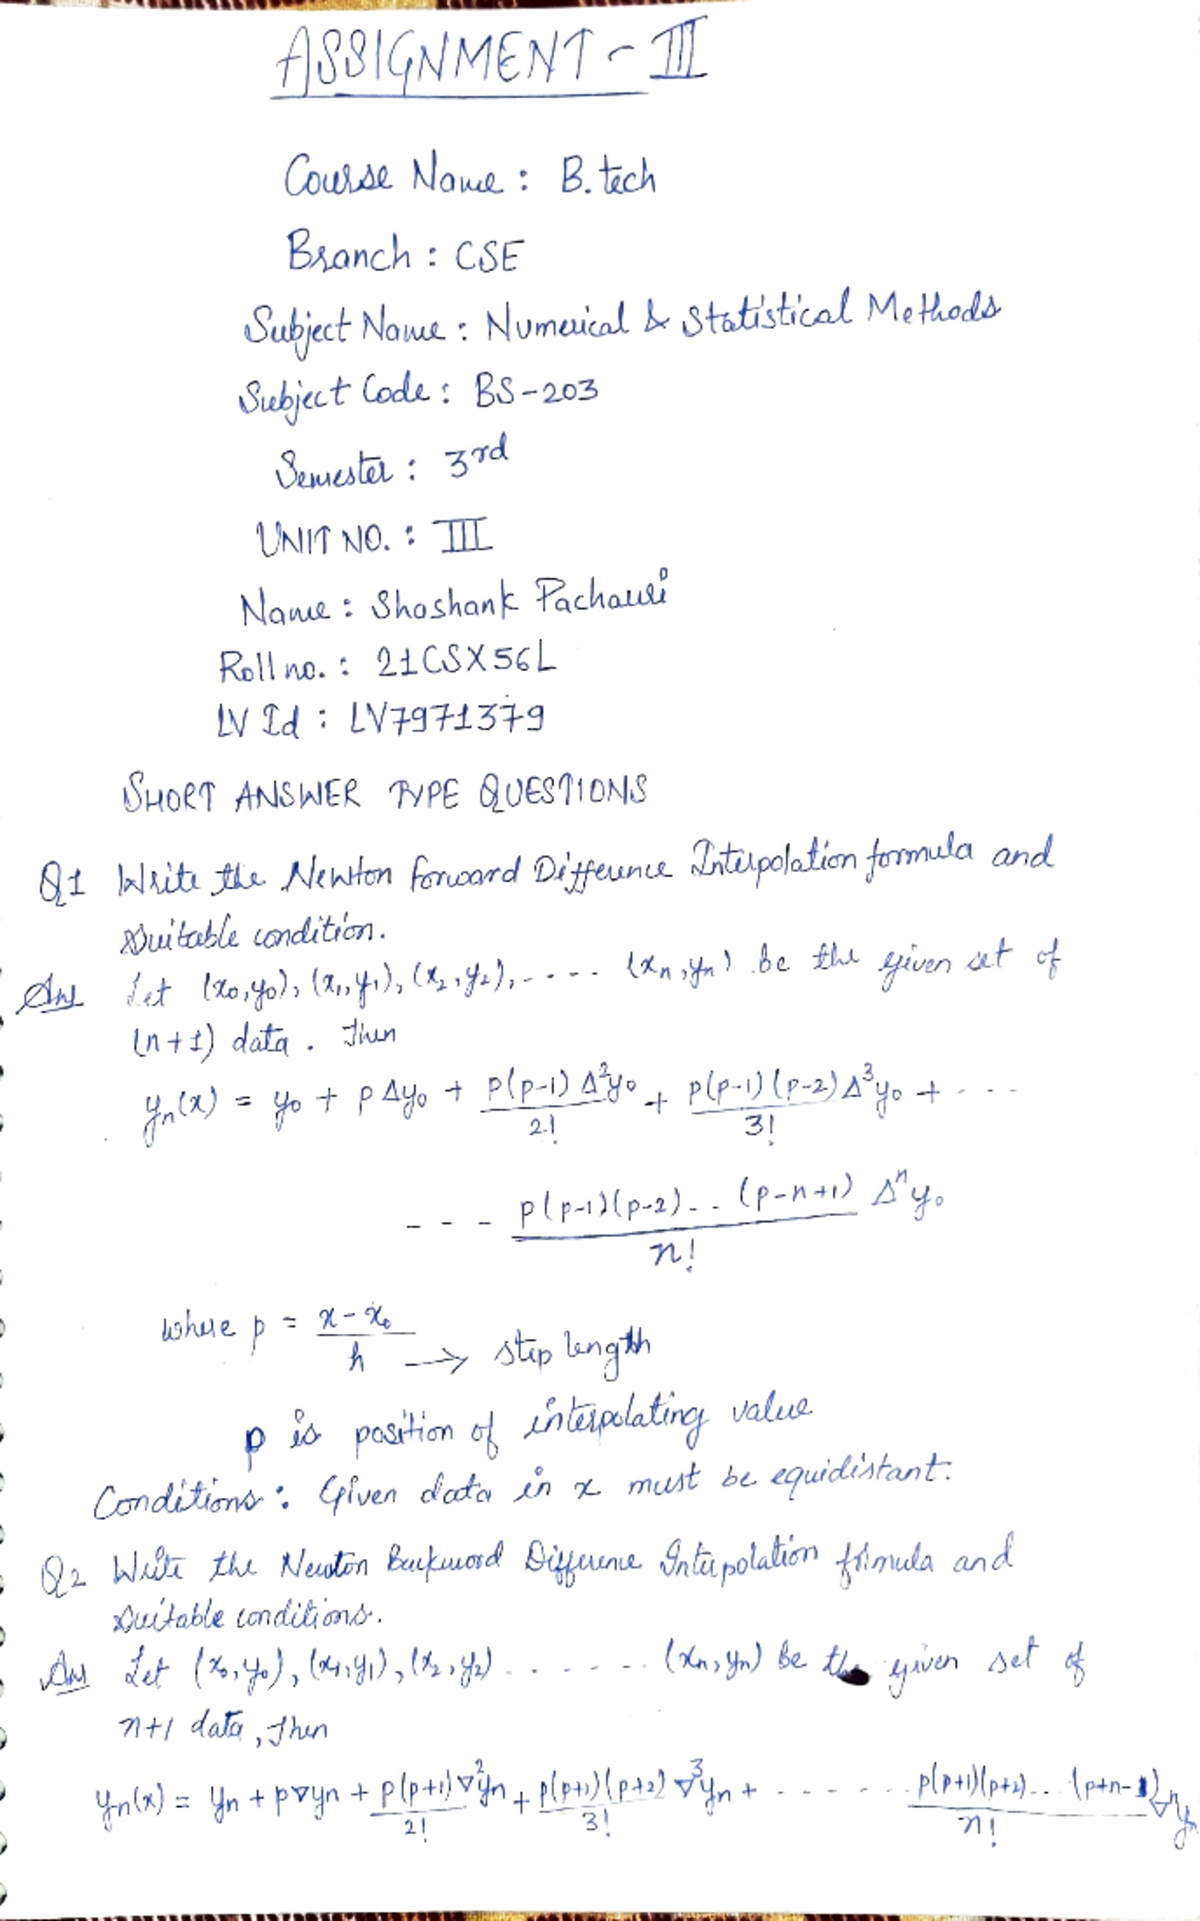 ASSIGNMENT - III
Course Name : B.tech
Branch : CSE
Subject Name : Numerical & Statistical Methods
Subject Code : BS-203
Semester : 3rd
UNIT NO. : III
Name : Shashank Pachauri
Roll no. : 21CSX56L
LV Id : LV7971379
SHORT ANSWER TYPE QUESTIONS
Q1 Write the Newton forward Difference Interpolation formula and
suitable condition.
Ans Let (x₀,y₀), (x₁,y₁), (x₂,y₂), ..... (xₙ,yₙ) be the given set of
(n+1) data. Then
yₙ(x) = y₀ + pΔy₀ + p(p-1)Δ²y₀/2! + p(p-1)(p-2)Δ³y₀/3! + ...
--- p(p-1)(p-2)...(p-n+1)/n! Δⁿy₀
where p = (x-x₀)/h → step length
p is position of interpolating value
Conditions : Given data in x must be equidistant.
Q2 Write the Newton Backword Difference Interpolation formula and
suitable conditions.
Ans Let (x₀,y₀), (x₁,y₁), (x₂,y₂) ....... (xₙ,yₙ) be the given set of
n+1 data, then
yₙ(x) = yₙ + p∇yₙ + p(p+1)∇²yₙ/2! + p(p+1)(p+2)∇³yₙ/3! + ...... p(p+1)(p+2)...(p+n-1)∇ⁿyₙ/n!